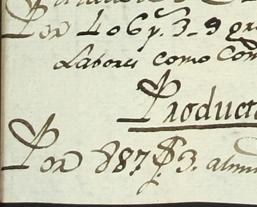 Por 206 p. 3_9 gra
Labores como Com
Producta
Por 887 p. 3. almu